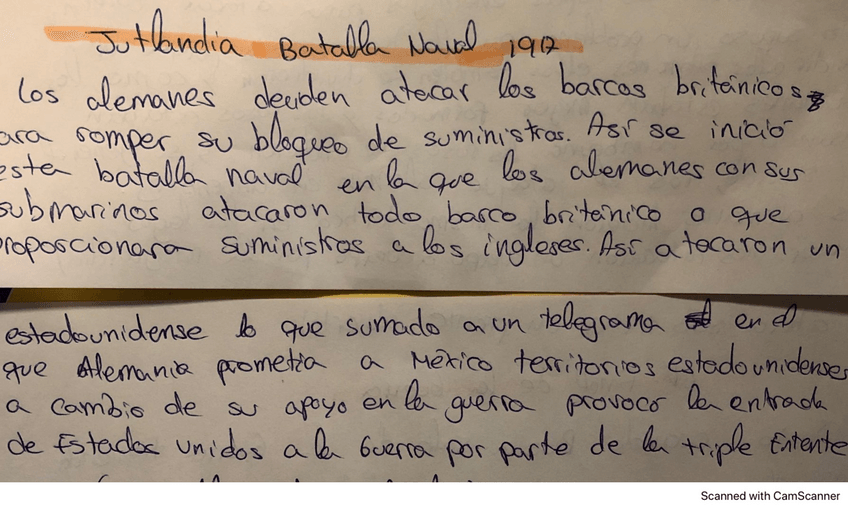 Jutlandia Batalla Naval 1917
Los alemanes deciden atacar los barcos británicos
ara romper su bloqueo de suministros. Así se inició
esta batalla naval en la que los alemanes con sus
submarinos atacaron todo barco británico o que
proporcionara suministros a los ingleses. Así atacaron un
estadounidense lo que sumado a un telegrama en el
que Alemania prometía a México territorios estadounidenses
a cambio de su apoyo en la guerra provocó la entrada
de Estados Unidos a la Guerra por parte de la triple Entente
Scanned with CamScanner